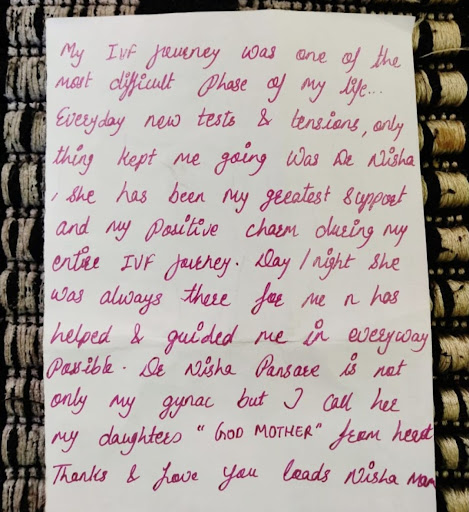 My IVF journey was one of the
most difficult phase of my life...
Everyday new tests & tensions, only
thing kept me going was Dr Nisha
, she has been my greatest support
and my positive charm during my
entire IVF journey. Day/night she
was always there for me n has
helped & guided me in everyway
possible. Dr Nisha Pansare is not
only my gynac but I call her
my daughters "GOD MOTHER" from heart
Thanks & Love you loads Nisha Mam